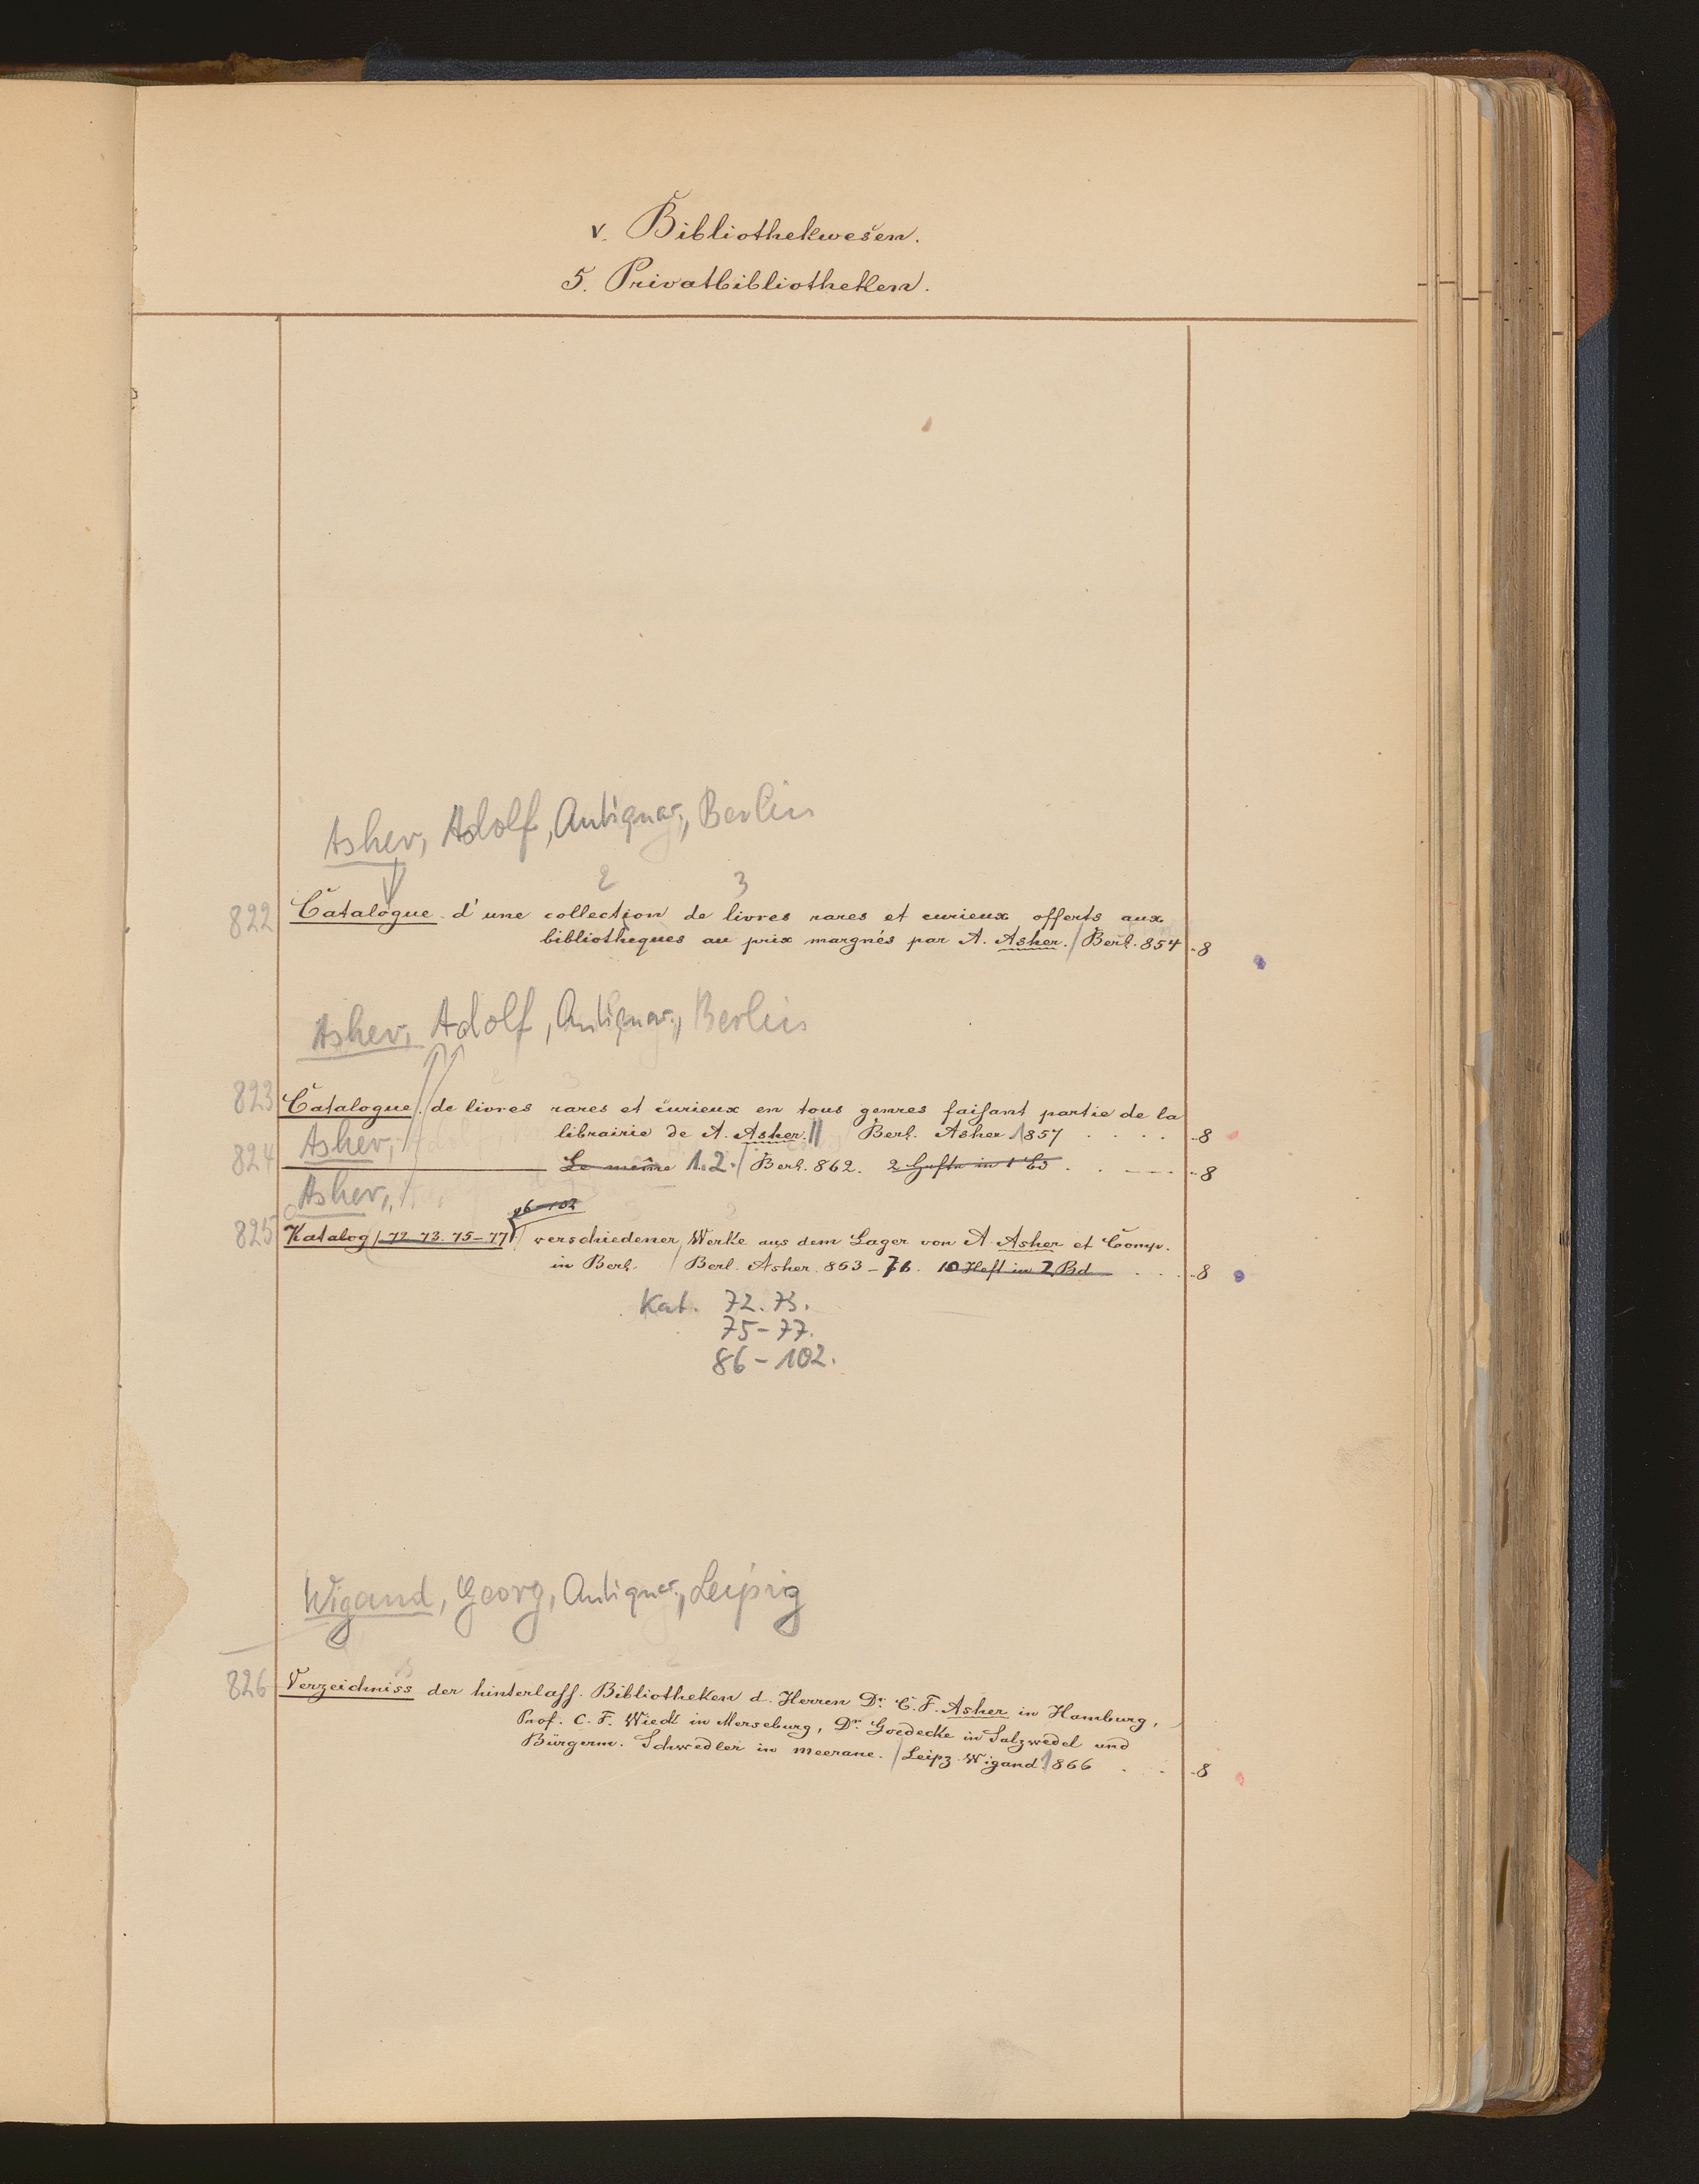 v. Bibliothekwesen.
5. Privatbibliotheken.
Asher, Adolf, Antiquar, Berlin
2 3
822 Catalogue d'une collection de livres rares et curieux offerts aux
bibliothèques au prix margnés par A. Asher. / Berl. 854 -8
Asher, Adolf, Antiquar, Berlin
2 3
823 Catalogue // de livres rares et curieux en tous genres faisant partie de la
librairie de A. Asher. || Berl. Asher 1857 . . . . -8
Asher,
824 Le même 1. 2. / Berl. 862. 2 Hefte in 1 Bd . . -8
Asher,
86-102
825 Katalog / 72. 73. 75-77 / verschiedener Werke aus dem Lager von A. Asher et Comp.
in Berl. / Berl. Asher. 863-76. 10 Heft in 2 Bd . . . -8
Kat. 72. 73.
75-77.
86-102.
Wigand, Georg, Antiquar, Leipzig
826 Verzeichniss der hinterlass. Bibliotheken d. Herren Dr. C. F. Asher in Hamburg,
Prof. C. F. Wiedt in Merseburg, Dr. Goedecke in Salzwedel und
Bürgerm. Schwedler in Meerane. / Leipz. Wigand. 1866 . . -8